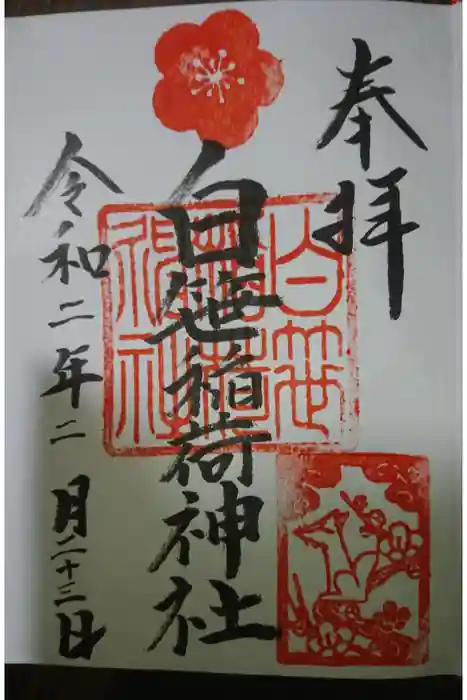 奉拝
白笹稲荷神社
令和二年二月二十三日
白笹稲荷神社